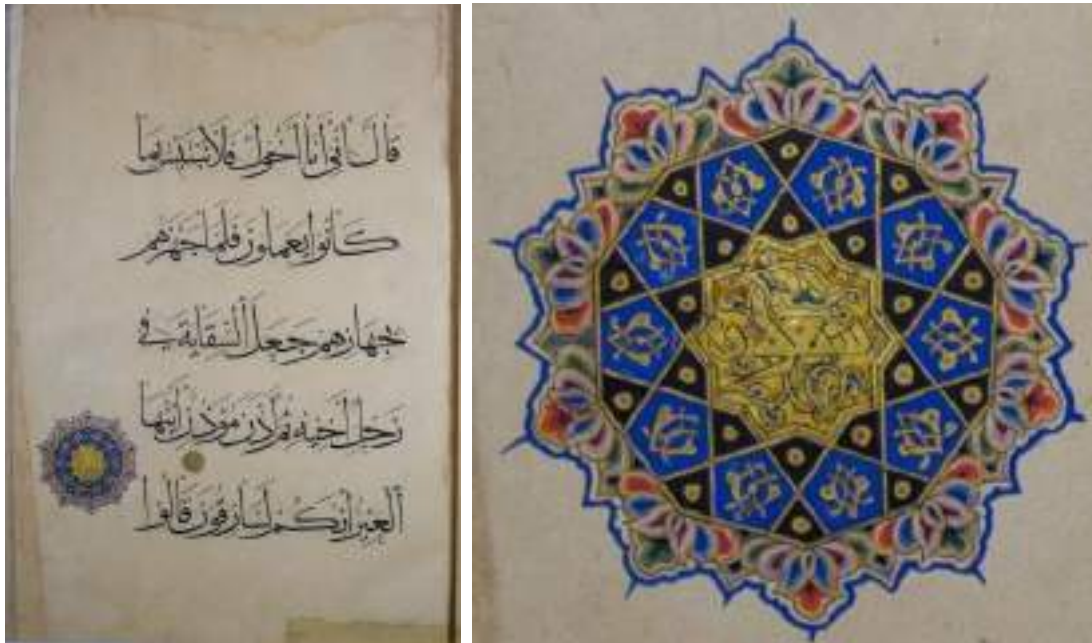 قال إني أنا أخوك فلا تبتئس بما
كانوا يعملون فلما جهزهم
بجهازهم جعل السقاية في
رحل أخيه ثم أذن مؤذن أيتها
العير إنكم لسارقون قالوا